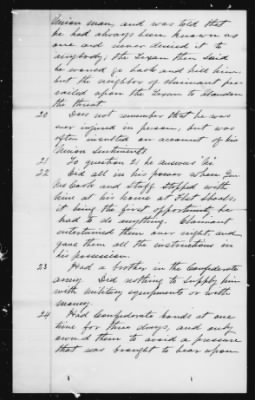 Union man, and was told that
he had always been known as
one and never denied it to
anybody; the Texan then said
he would go back and kill him
but the neighbor of claimant pre
vailed upon the Texan to abandon
the threat.
20 Does not remember that he was
ever injured in person, but was
often insulted on account of his
Union sentiments.
21 To question 21 he answers "No"
22 Did all in his power when Gen.
McCook and Staff stopped with
him at his house at Flat Shoals,
it being the first opportunity he
had to do anything. Claimant
entertained them over night, and
gave them all the instructions in
his possession.
23 Had a brother in the Confederate
army. Did nothing to supply him
with military equipments or with
money.
24 Had Confederate bonds at one
time for three days, and only
owned them to avoid a pressure
that was brought to bear upon